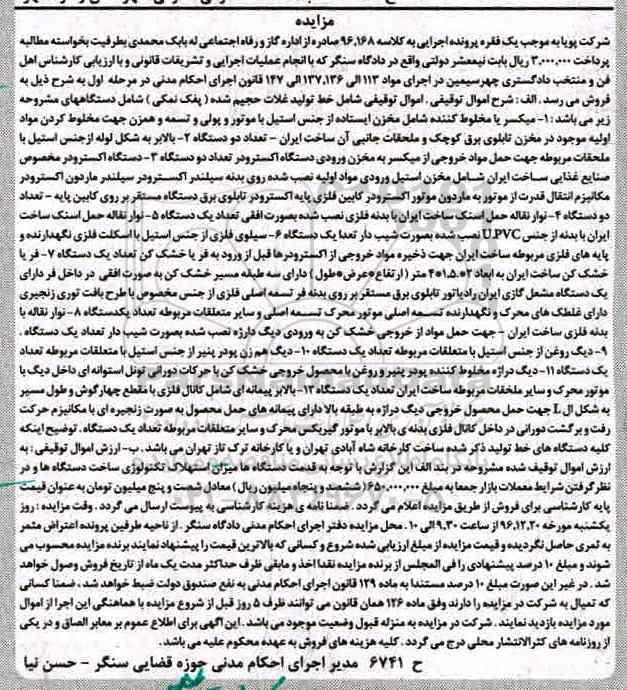 مزایده
شرکت پویا به موجب یک فقره پرونده اجرایی به کلاسه ۹۶,۱۶۸ صادره از اداره گاز و رفاه اجتماعی له بابک محمدی بطرفیت بخواسته مطالبه
پرداخت ۳,۰۰۰,۰۰۰ ریال بابت نیمعشر دولتی واقع در دادگاه سنگر که با انجام عملیات اجرایی و تشریفات قانونی و با ارزیابی کارشناس اهل
فن و منتخب دادگستری چهرسیمین در اجرای مواد ۱۱۳ الی ۱۳۷,۱۳۶ الی ۱۴۷ قانون اجرای احکام مدنی در مرحله اول به شرح ذیل به
فروش می رسد . الف : شرح اموال توقیفی . اموال توقیفی شامل خط تولید غلات حجیم شده ( پفک نمکی ) شامل دستگاههای مشروحه
زیر می باشد : ۱- میکسر یا مخلوط کننده شامل مخزن ایستاده از جنس استیل با موتور و پولی و تسمه و همزن جهت مخلوط کردن مواد
اولیه موجود در مخزن تابلوی برق کوچک و ملحقات جانبی آن ساخت ایران - تعداد دو دستگاه ۲- بالابر به شکل لوله از جنس استیل با
ملحقات مربوطه جهت حمل مواد خروجی از میکسر به مخزن ورودی دستگاه اکسترودر تعداد دو دستگاه ۳- دستگاه اکسترودر مخصوص
صنایع غذایی ساخت ایران شامل مخزن استیل ورودی مواد اولیه نصب شده روی بدنه سیلندر اکسترودر سیلندر ماردون اکسترودر
مکانیزم انتقال قدرت از موتور به ماردون موتور اکسترودر کابین فلزی پایه اکسترودر تابلوی برق دستگاه مستقر بر روی کابین پایه - تعداد
دو دستگاه ۴- نوار نقاله حمل اسنک ساخت ایران با بدنه فلزی نصب شده بصورت افقی تعداد یک دستگاه ۵- نوار نقاله حمل اسنک ساخت
ایران با بدنه از جنس U.PVC نصب شده بصورت شیب دار تعدا یک دستگاه ۶- سیلوی فلزی از جنس استیل با اسکلت فلزی نگهدارنده و
پایه های فلزی مربوطه ساخت ایران جهت ذخیره مواد خروجی از اکسترودرها قبل از ورود به فر یا خشک کن تعداد یک دستگاه ۷- فر یا
خشک کن ساخت ایران به ابعاد متر ( ارتفاع*عرض*طول ) دارای سه طبقه مسیر خشک کن به صورت افقی در داخل فر دارای
یک دستگاه مشعل گازی ایران رادیاتور تابلوی برق مستقر بر روی بدنه فر تسمه اصلی فلزی از جنس مخصوص با طرح بافت توری زنجیری
دارای غلطک های محرک و نگهدارنده تسمه اصلی موتور محرک تسمه اصلی و سایر متعلقات مربوطه تعداد یکدستگاه ۸- نوار نقاله با
بدنه فلزی ساخت ایران - جهت حمل مواد از خروجی خشک کن به ورودی دیگ دارژه نصب شده بصورت شیب دار تعداد یک دستگاه .
۹- دیگ روغن از جنس استیل با متعلقات مربوطه تعداد یک دستگاه ۱۰- دیگ هم زن پودر پنیر از جنس استیل با متعلقات مربوطه تعداد
یک دستگاه ۱۱- دیگ دراژه مخلوط کننده پودر پنیر و روغن با محصول خروجی خشک کن با حرکات دورانی تونل استوانه ای داخل دیگ با
موتور محرک و سایر ملحقات مربوطه ساخت ایران تعداد یک دستگاه ۱۳- بالابر پیمانه ای شامل کانال فلزی با مقطع چهارگوش و طول مسیر
به شکل ال L جهت حمل محصول خروجی دیگ دراژه به طبقه بالا دارای پیمانه های حمل محصول به صورت زنجیره ای با مکانیزم حرکت
رفت و برگشت دورانی در داخل کانال فلزی بدنه ی بالابر با موتور گیربکس محرک و سایر متعلقات مربوطه تعداد یک دستگاه . توضیح اینکه
کلیه دستگاه های خط تولید ذکر شده ساخت کارخانه شاه آبادی تهران و یا کارخانه ترک تاز تهران می باشد . ب- ارزش اموال توقیفی : به
ارزش اموال توقیف شده مشروحه در بند الف این گزارش با توجه به قدمت دستگاه ها میزان استهلاک تکنولوژی ساخت دستگاه ها و در
نظر گرفتن شرایط معملات بازار جمعا به مبلغ ۶۵۰,۰۰۰,۰۰۰ ( ششصد و پنجاه میلیون ریال ) معادل شصت و پنج میلیون تومان به عنوان قیمت
پایه کارشناسی برای فروش از طریق مزایده اعلام می گردد . ضمنا نامه ی هزینه کارشناسی به پیوست ارسال می گردد . وقت مزایده : روز
یکشنبه مورخه ۹۶,۱۲,۲۰ از ساعت ۹,۳۰ الی ۱۰ . محل مزایده دفتر اجرای احکام مدنی دادگاه سنگر . از ناحیه طرفین پرونده اعتراض مثمر
به ثمری حاصل نگردیده و قیمت مزایده از مبلغ ارزیابی شده شروع و کسانی که بالاترین قیمت را پیشنهاد نمایند برنده مزایده محسوب می
شوند و مبلغ ۱۰ درصد پیشنهادی را فی المجلس از برنده مزایده نقدا اخذ و مابقی ظرف حداکثر مدت یک ماه از تاریخ فروش وصول خواهد
شد . در غیر این صورت مبلغ ۱۰ درصد مستندا به ماده ۱۲۹ قانون اجرای احکام مدنی به نفع صندوق دولت ضبط خواهد شد . ضمنا کسانی
که تمیال به شرکت در مزایده را دارند وفق ماده ۱۲۶ همان قانون می توانند ظرف ۵ روز قبل از شروع مزایده با هماهنگی این اجرا از اموال
مورد مزایده بازدید نمایند . شرکت در مزایده به منزله قبول وضعیت موجود می باشد . این آگهی برای اطلاع عموم بر معابر الصاق و در یکی
از روزنامه های کثرالانتشار محلی درج می گردد . کلیه هزینه های فروش به عهده محکوم علیه می باشد .
ح ۶۷۴۱ مدیر اجرای احکام مدنی حوزه قضایی سنگر - حسن نیا